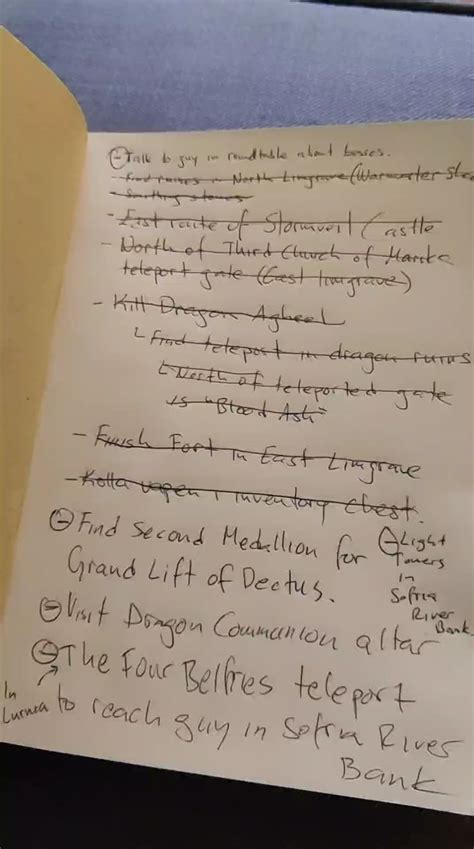 - Talk to guy in roundtable about bosses.
- Find ruins in North Limgrave (Warmaster Shac
- Smithing stones
- East route of Stormveil Castle
- North of Third Church of Marika
teleport gate (East limgrave)
- Kill Dragon Agheel
Find teleport in dragon ruins
North of teleported gate
is "Blood Ash"
- Finish Fort in East Limgrave
- Kolla vapen i inventory chest.
- Find Second Medallion for
Grand Lift of Dectus.
- Light
Towers
in
Sofria
River
Bank
- Visit Dragon Communion altar
- The Four Belfries teleport
In
Lurnea
to reach guy in Sofria River
Bank